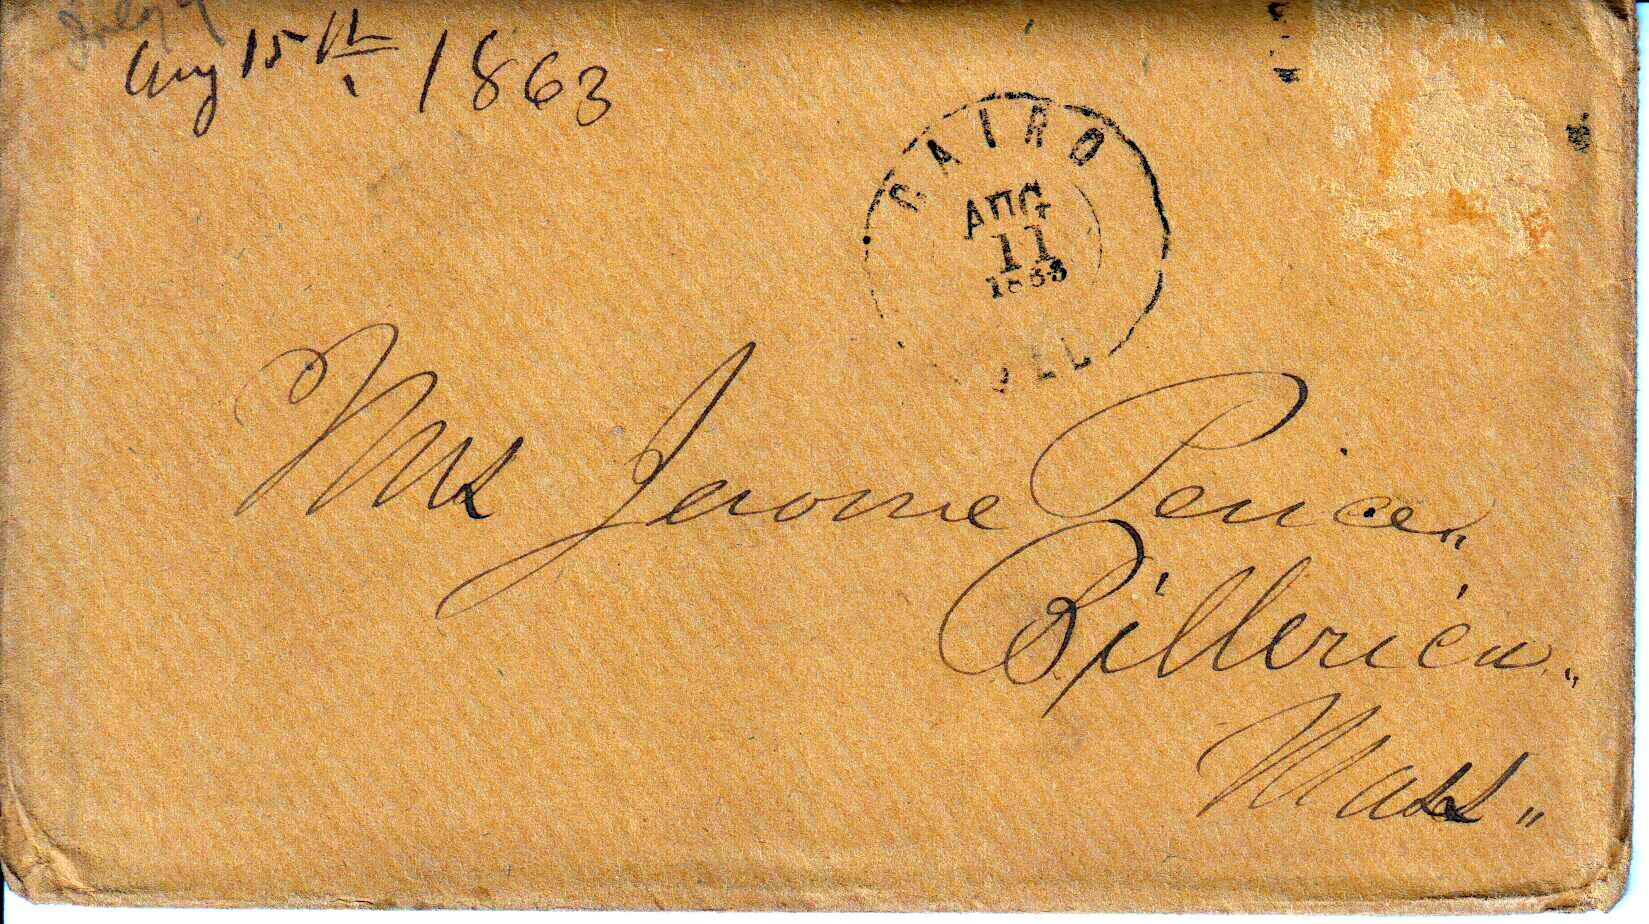 July 9
Aug 15th, 1863
CAIRO
AUG
11
1863
ILL
Mrs Jerome Peirce,,
Billerica,,
Mass,,